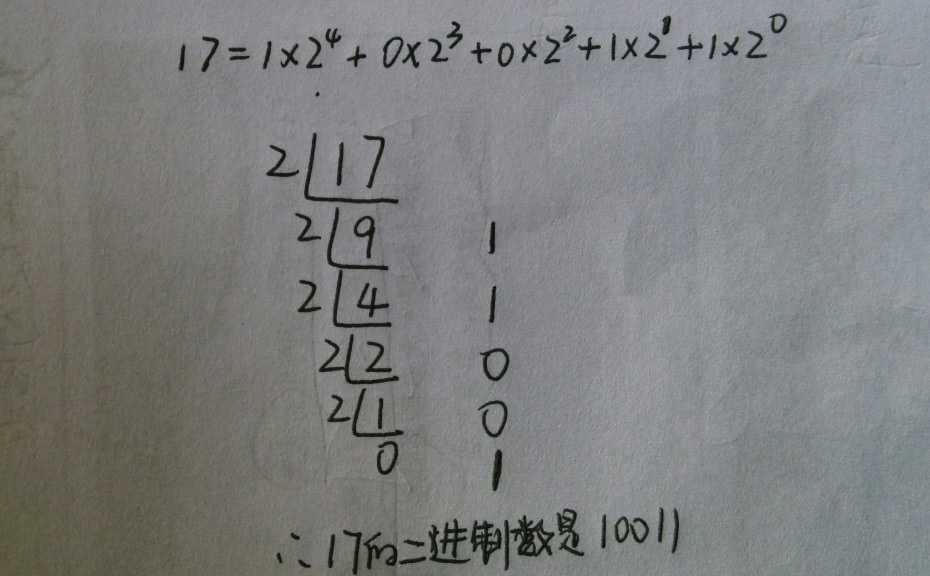 17=1×2⁴+0×2³+0×2²+1×2¹+1×2⁰
2 17
2 9 1
2 4 1
2 2 0
2 1 0
0 1
∴17的二进制数是10011